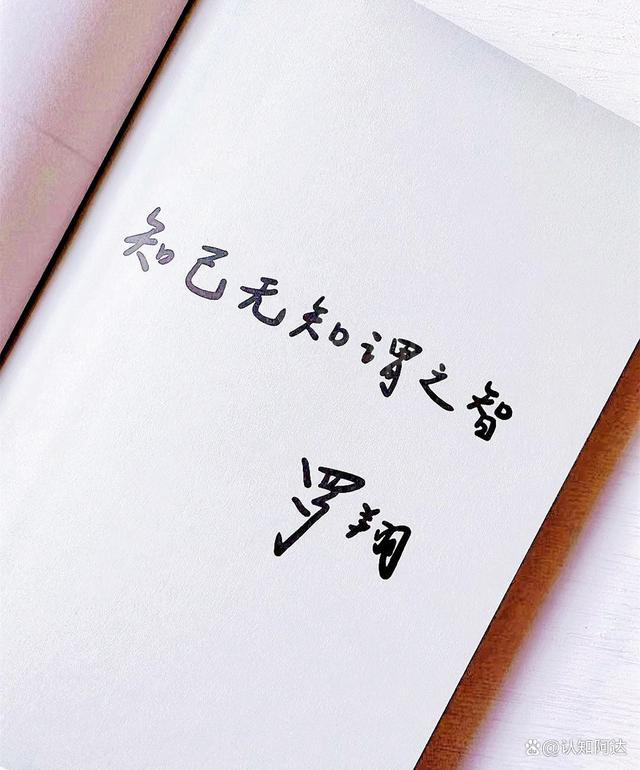 知己无知谓之智
罗翔
@认知阿达